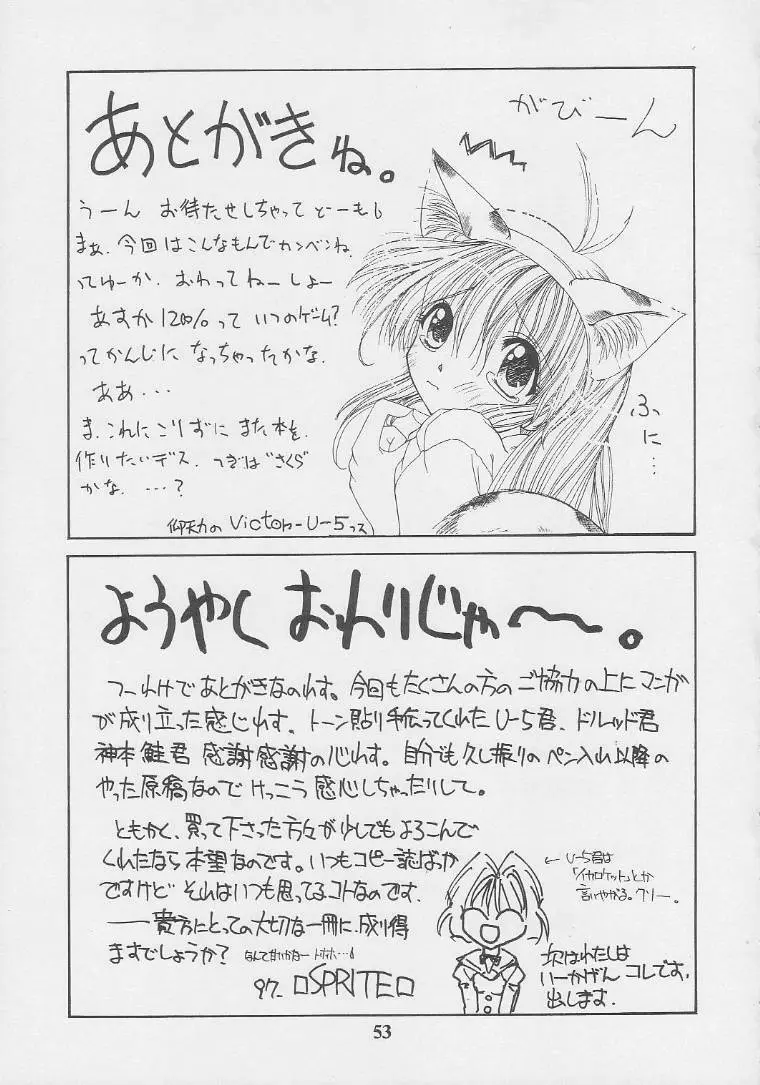 あとがきね。
がびーん
うーん お待たせしちゃって どーも
まぁ、今回はこんなもんでカンベンね
ってゆーか、おわってねーしょー
あすか120%って いつのゲーム?
ってかんじに なっちゃったかな。
ああ・・・
ま、これにこりずに また本を、
作りたいデス. つぎは"さくら"
かな. ・・・?
ふに…
Victor-U-5っス
ようやく おわりじゃ〜〜。
つーわけであとがきなのれす。今回もたくさんの方のご協力の上にマンガ
が成り立った感じれす、トーン貼り手伝ってくれたU-5君、ドルッド君
神本 鮭君 感謝感謝の心れす。自分でも久し振りのペン入れ以降の
やった原稿なので けっこう感心しちゃったりして。
ともかく、買って下さった方々が少しでもよろこんで
くれたなら本望なのです。いつもコピー誌ばっか
ですけど それはいつも思ってるコトなのです.
——貴方にとっての大切な一冊に、成り得
ますでしょうか?
97- □SPRITE□
← U-5君は
「イカロケット」とか
言いやがる。クリー。
次はわたしは
いーかげん コレです.
出します.
53